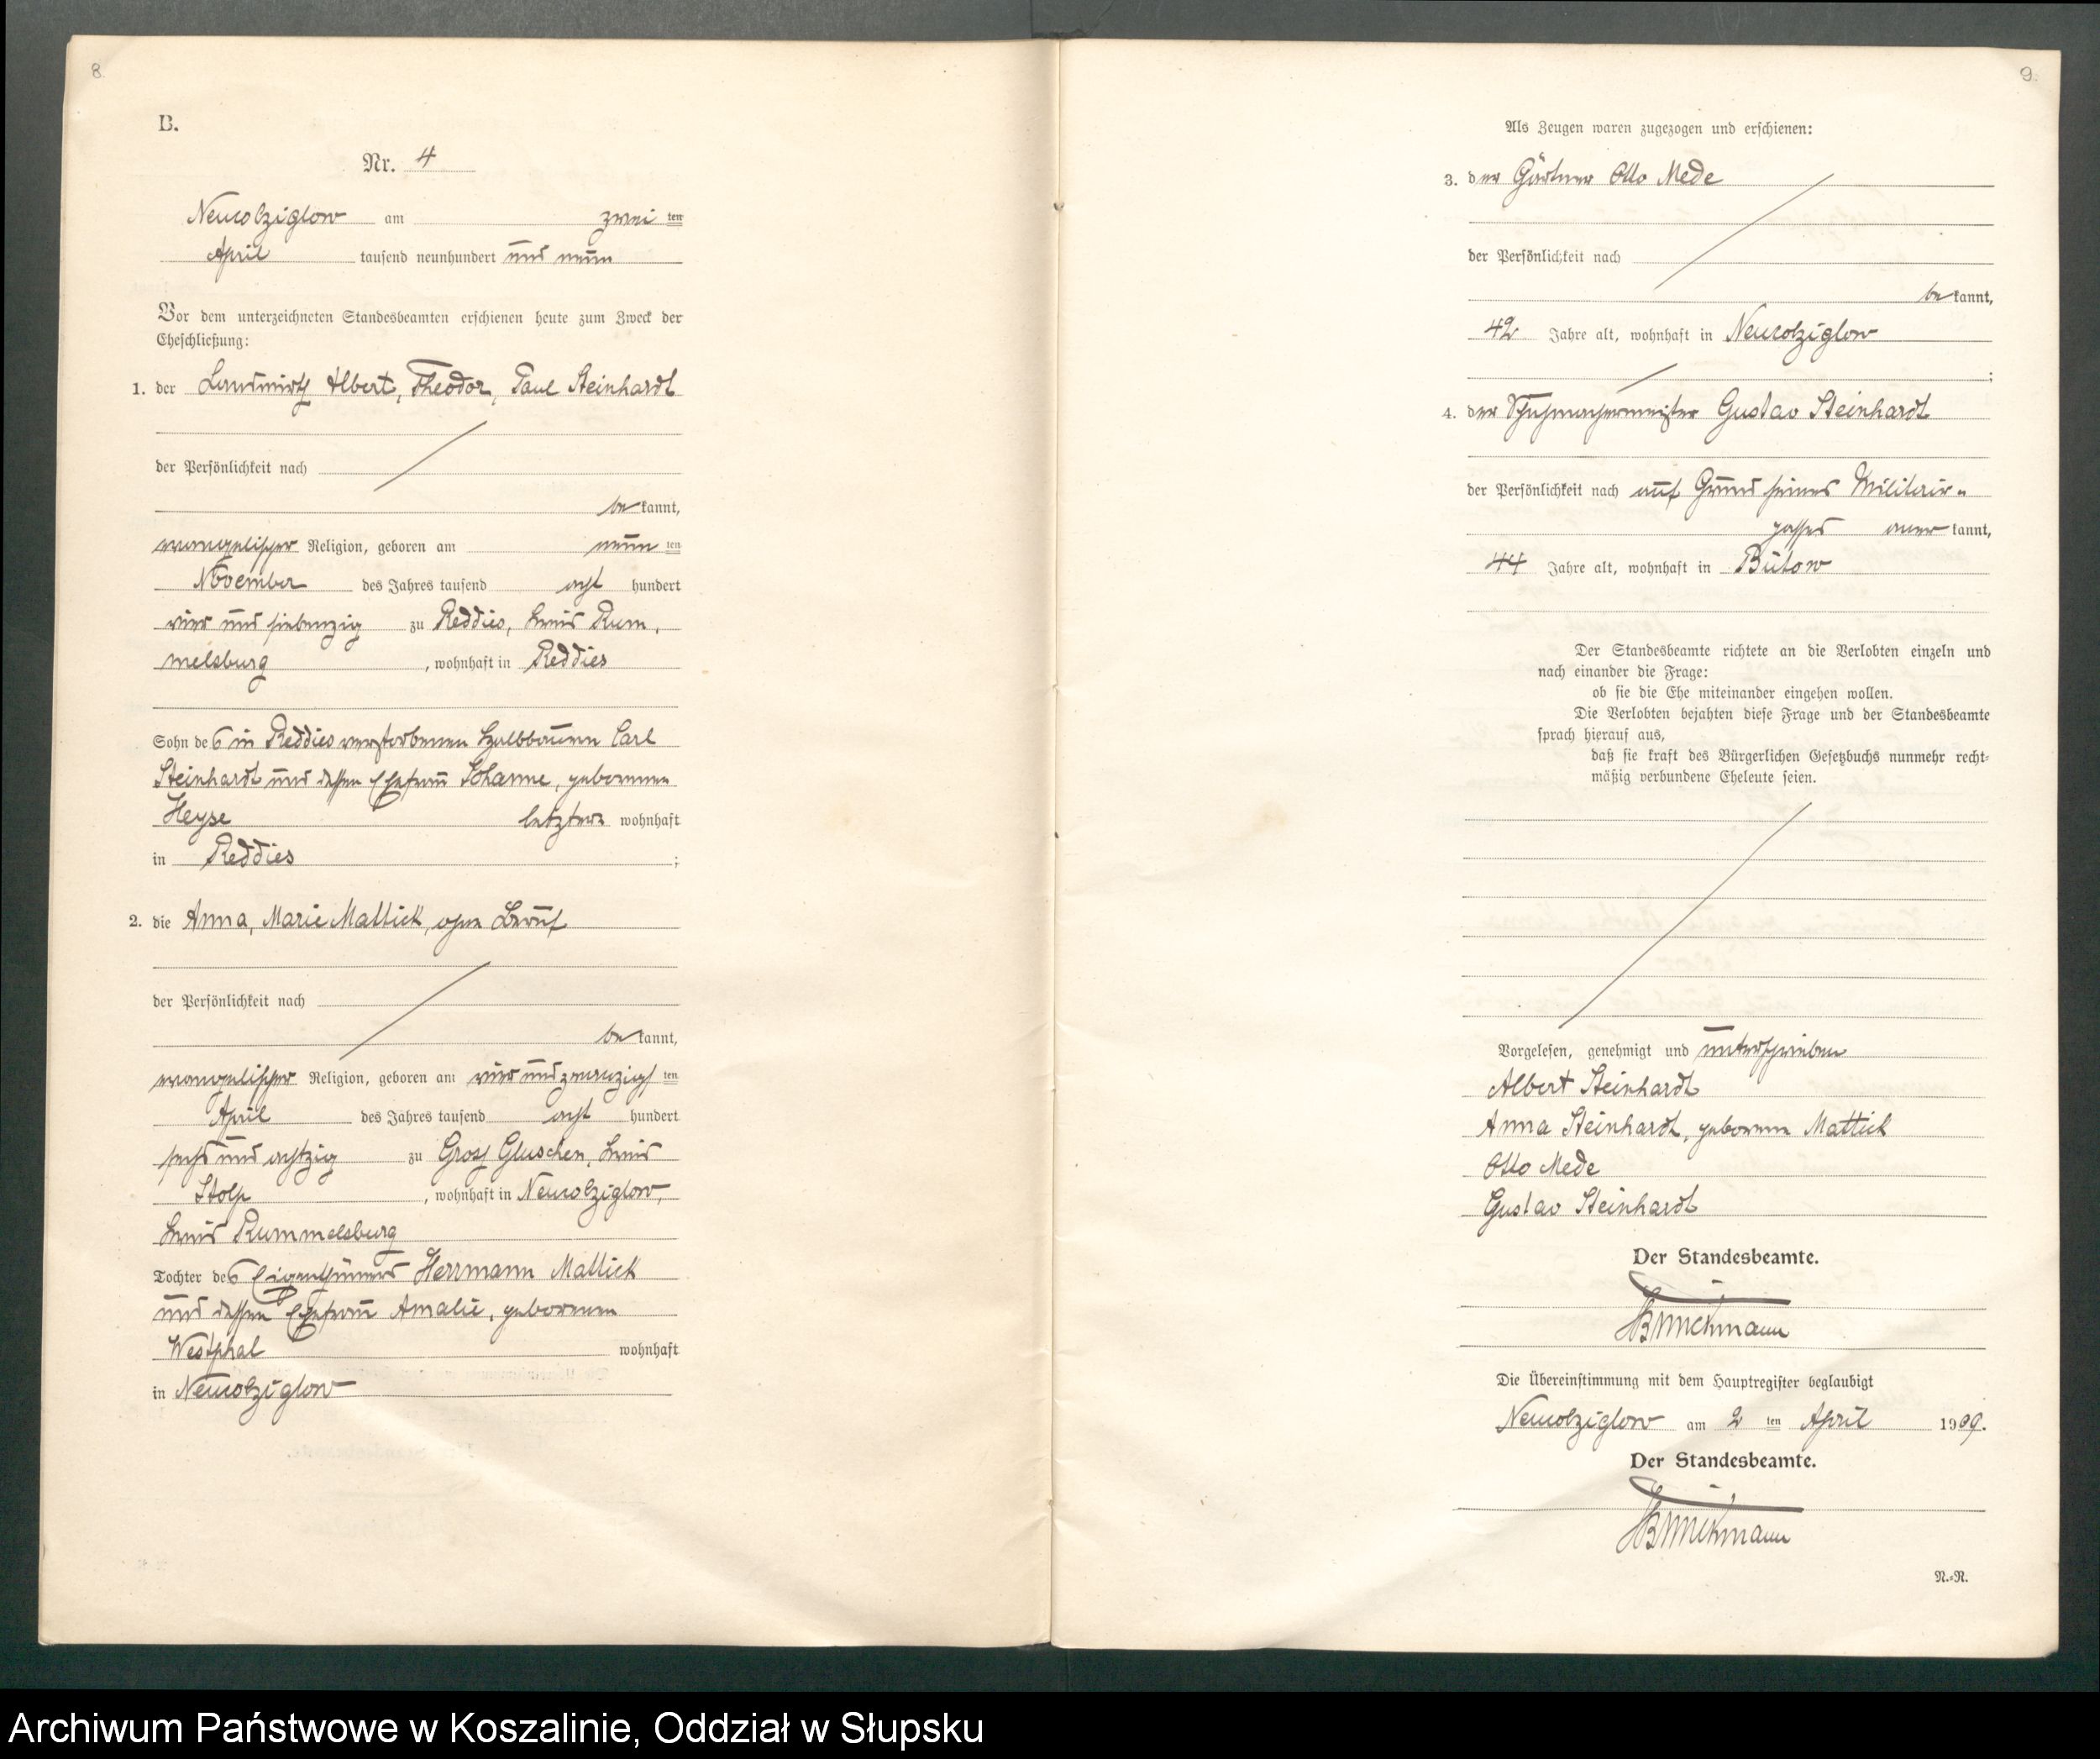 8.
B.
Nr. 4
Neukolziglow am zweiten
April tausend neunhundert und neun
Vor dem unterzeichneten Standesbeamten erschienen heute zum Zweck der
Eheschließung:
1. der Landwirth Albert, Theodor, Paul Steinhardt
der Persönlichkeit nach
bekannt,
evangelischer Religion, geboren am neunten
November des Jahres tausend acht hundert
vier und siebenzig zu Reddies, Kreis Rum,
melsburg, wohnhaft in Reddies
Sohn des in Reddies verstorbenen Halbbauern Carl
Steinhardt und dessen Ehefrau Johanne, geborenen
Heyse letztere wohnhaft
in Reddies ;
2. die Anna, Marie Mattick, ohne Beruf
der Persönlichkeit nach
bekannt,
evangelischer Religion, geboren am vier und zwanzigsten
April des Jahres tausend acht hundert
sechs und achtzig zu Gross Gluschen, Kreis
Stolp, wohnhaft in Neukolziglow,
Kreis Rummelsburg
Tochter des Eigenthümers Herrmann Mattick
und dessen Ehefrau Amalie, geborenen
Westphal wohnhaft
in Neukolziglow
9.
Als Zeugen waren zugezogen und erschienen:
3. der Gärtner Otto Mede
der Persönlichkeit nach
bekannt,
42 Jahre alt, wohnhaft in Neukolziglow
;
4. der Schuhmachermeister Gustav Steinhardt
der Persönlichkeit nach auf Grund seines Militair-
passes anerkannt,
44 Jahre alt, wohnhaft in Bütow
Der Standesbeamte richtete an die Verlobten einzeln und
nach einander die Frage:
ob sie die Ehe miteinander eingehen wollen.
Die Verlobten bejahten diese Frage und der Standesbeamte
sprach hierauf aus,
daß sie kraft des Bürgerlichen Gesetzbuchs nunmehr recht-
mäßig verbundene Eheleute seien.
Vorgelesen, genehmigt und unterschrieben
Albert Steinhardt
Anna Steinhardt, geborene Mattick
Otto Mede
Gustav Steinhardt
Der Standesbeamte.
Die Übereinstimmung mit dem Hauptregister beglaubigt
Neukolziglow am 2 ten April 1909.
Der Standesbeamte.
N.-R.
Archiwum Państwowe w Koszalinie, Oddział w Słupsku